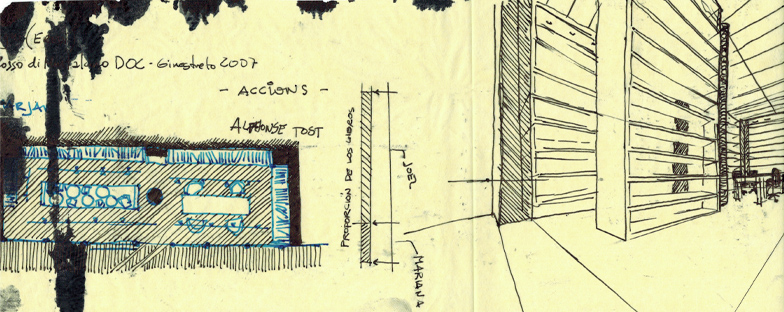 (E
osso di M
DOC - Ginestreto 2007
- ACCIONS -
ALPHONSE TOST
PROPORCIÓN DE LOS LIBROS
JOEL
MARIANA